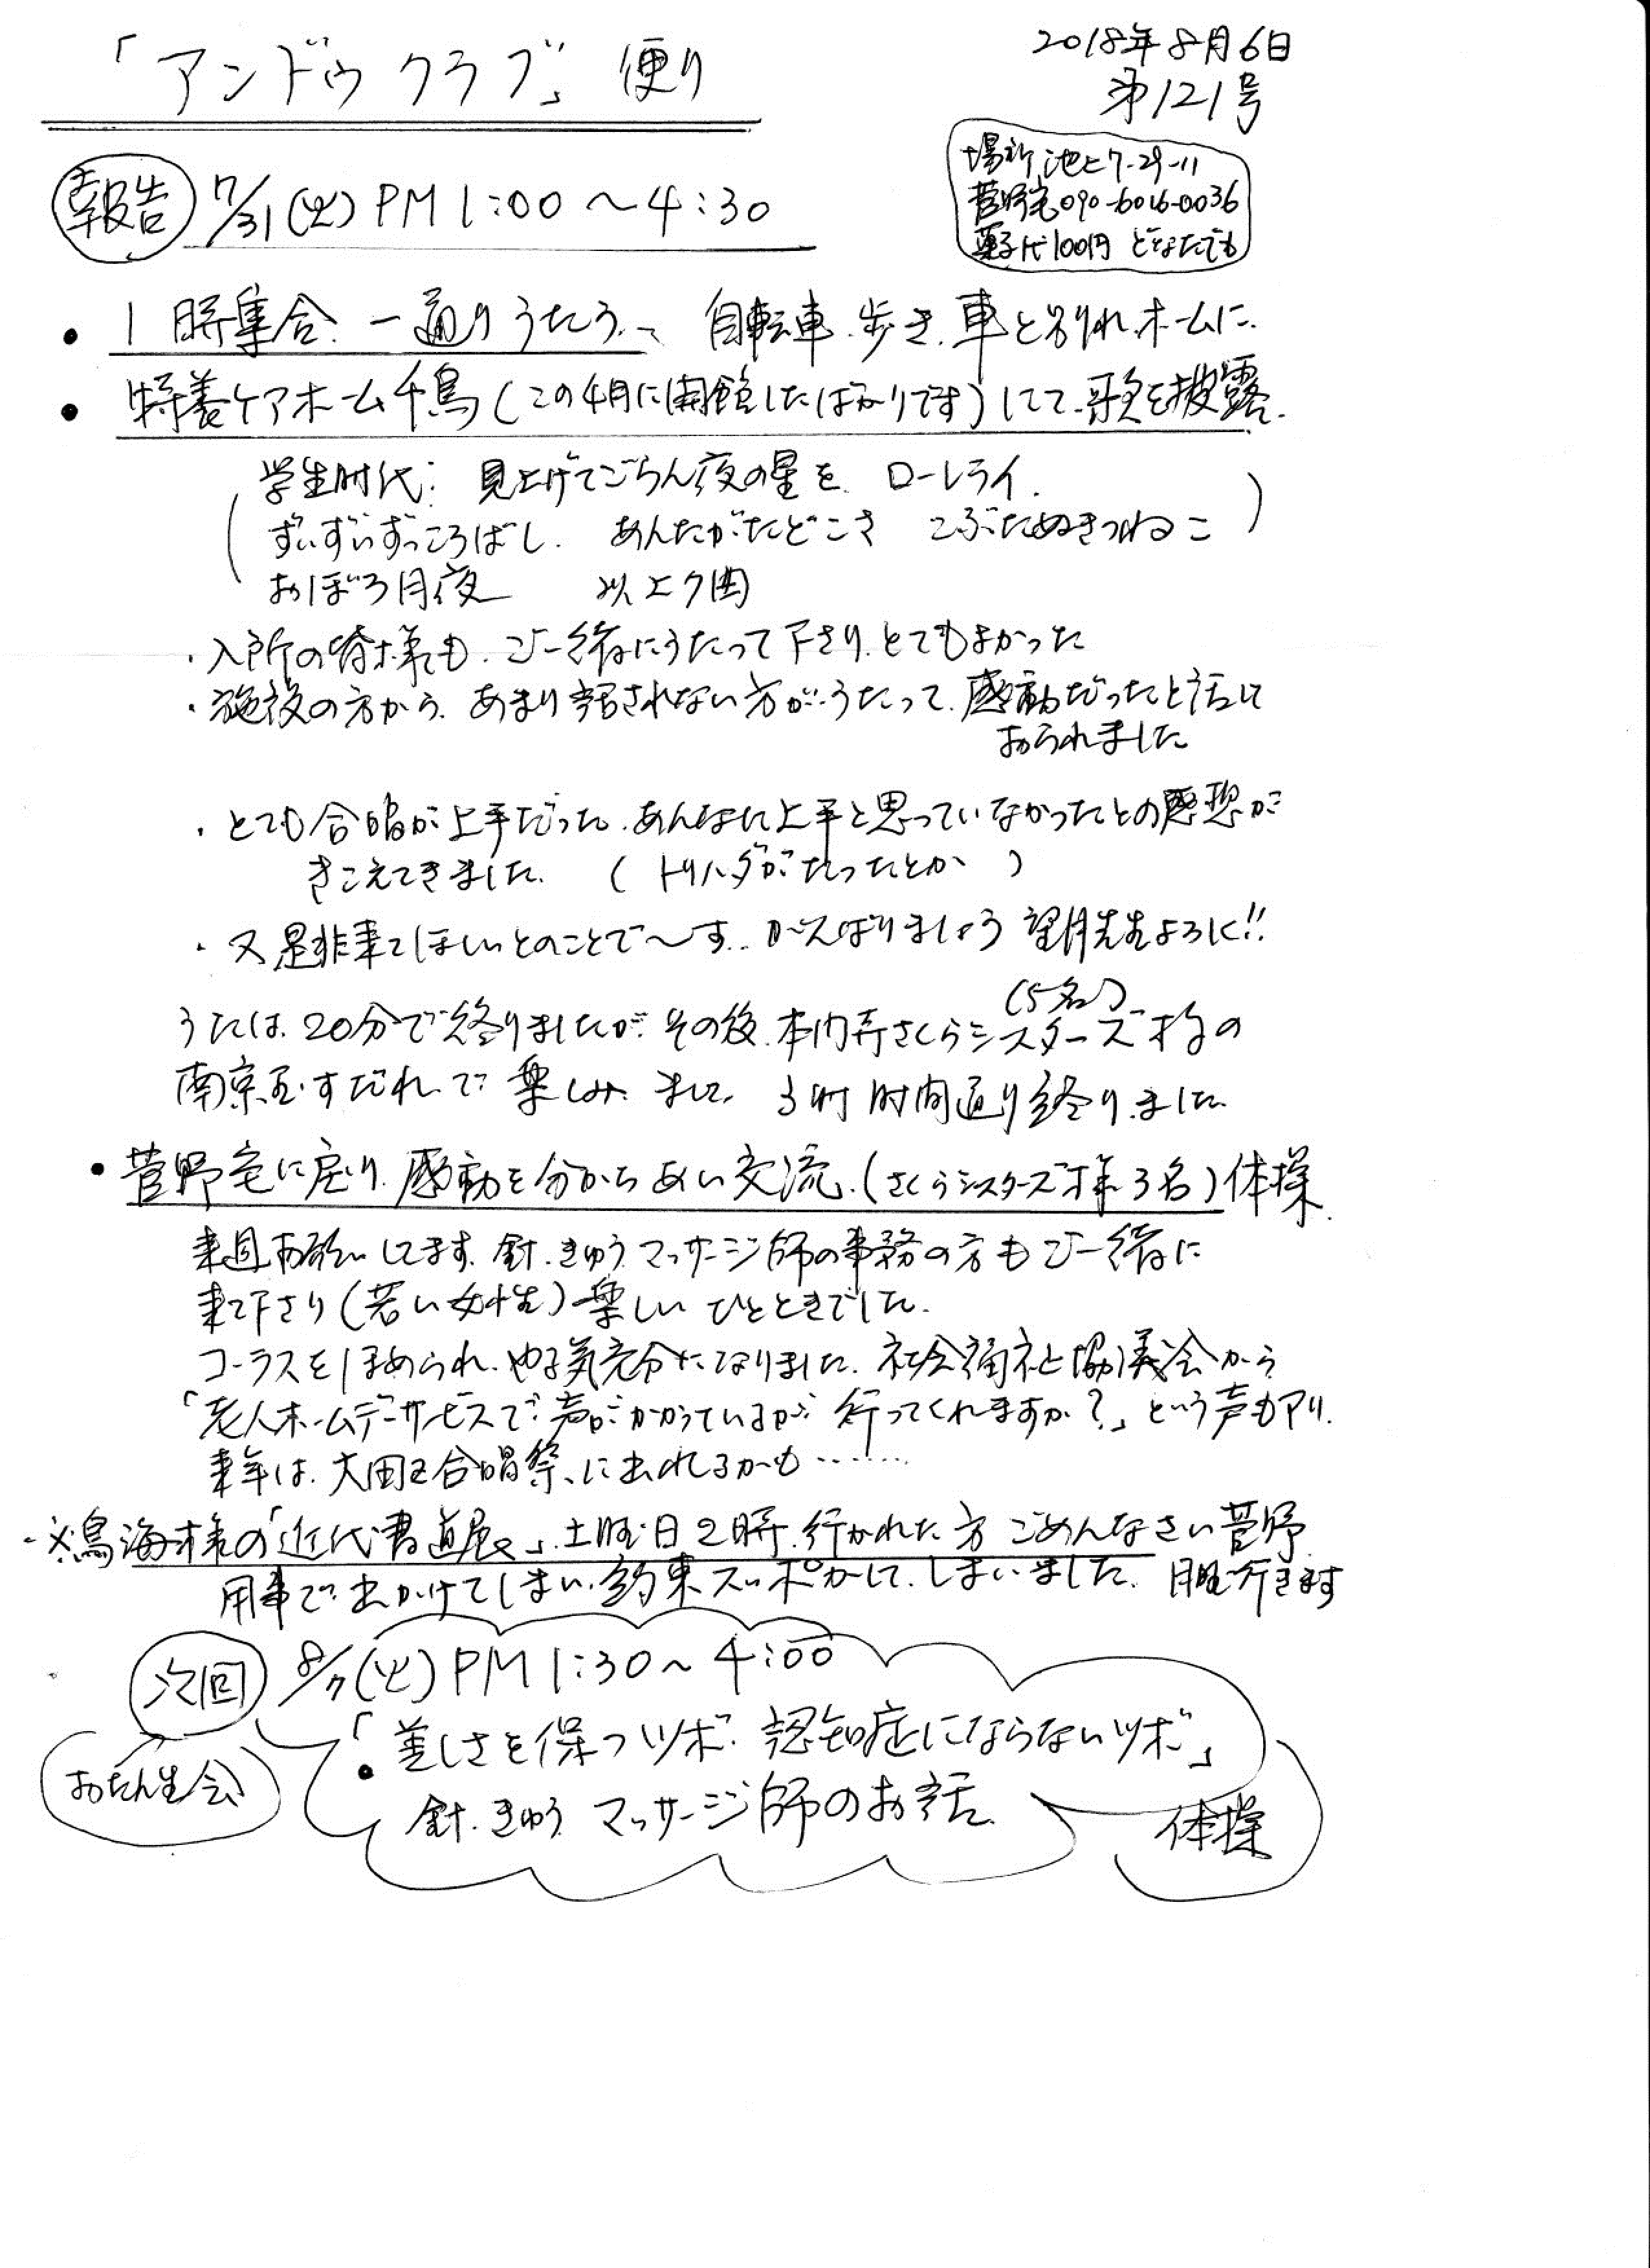 「アンドゥクラブ」便り
2018年8月6日
第121号
場所 池上7-29-11
菅野宅090-6016-0036
菓子代100円 どなたでも
報告 7/31(火) PM 1:00～4:30
・1時集合、一通りうたう、自転車、歩き、車と別れ、ホームに
・特養ケアホーム千鳥(この4月に開館したばかりです)にて、歌を披露
学生時代: 見上げてごらん夜の星を ローレライ
ずいずいずっころばし. あんたがたどこさ こぶたぬきつねこ
おぼろ月夜 以上7曲
・入所の皆様も、ご一緒にうたって下さり、とてもよかった
・施設の方から、あまり話されない方が、うたって、感動だったと話して
おられました
・とても合唱が上手だった、あんなに上手と思っていなかったとの感想が
きこえてきました. (トリハダがたったとか)
・又是非来てほしいとのことで～す.. がんばりましょう 望月先生よろしく!!
(5名)
うたは、20分で終りましたが、その後、本門寺さくらシスターズ様の
南京玉すだれで楽しみまして、3時 時間通り終りました
・菅野宅に戻り、感動を分かちあい交流、(さくらシスターズ様3名)体操
来週お願いしてます、針、きゅう、マッサージ師の事務の方もご一緒に
来て下さり(若い女性)楽しいひとときでした.
コーラスをほめられ、やる気充分になりました. 社会福祉協議会から
「老人ホームデーサービスで声がかかっているが行ってくれますか?」という声もアリ.
来年は、大田区合唱祭、に出れるかも……
・※鳥海様の「近代書道展」、土曜日2時、行かれた方 ごめんなさい 菅野
用事で出かけてしまい、約束スッポかして、しまいました、月曜行きます
次回 8/7(火) PM 1:30～4:00
おたん生会
・「美しさを保つツボ. 認知症にならないツボ」
針、きゅう、マッサージ師のお話
体操